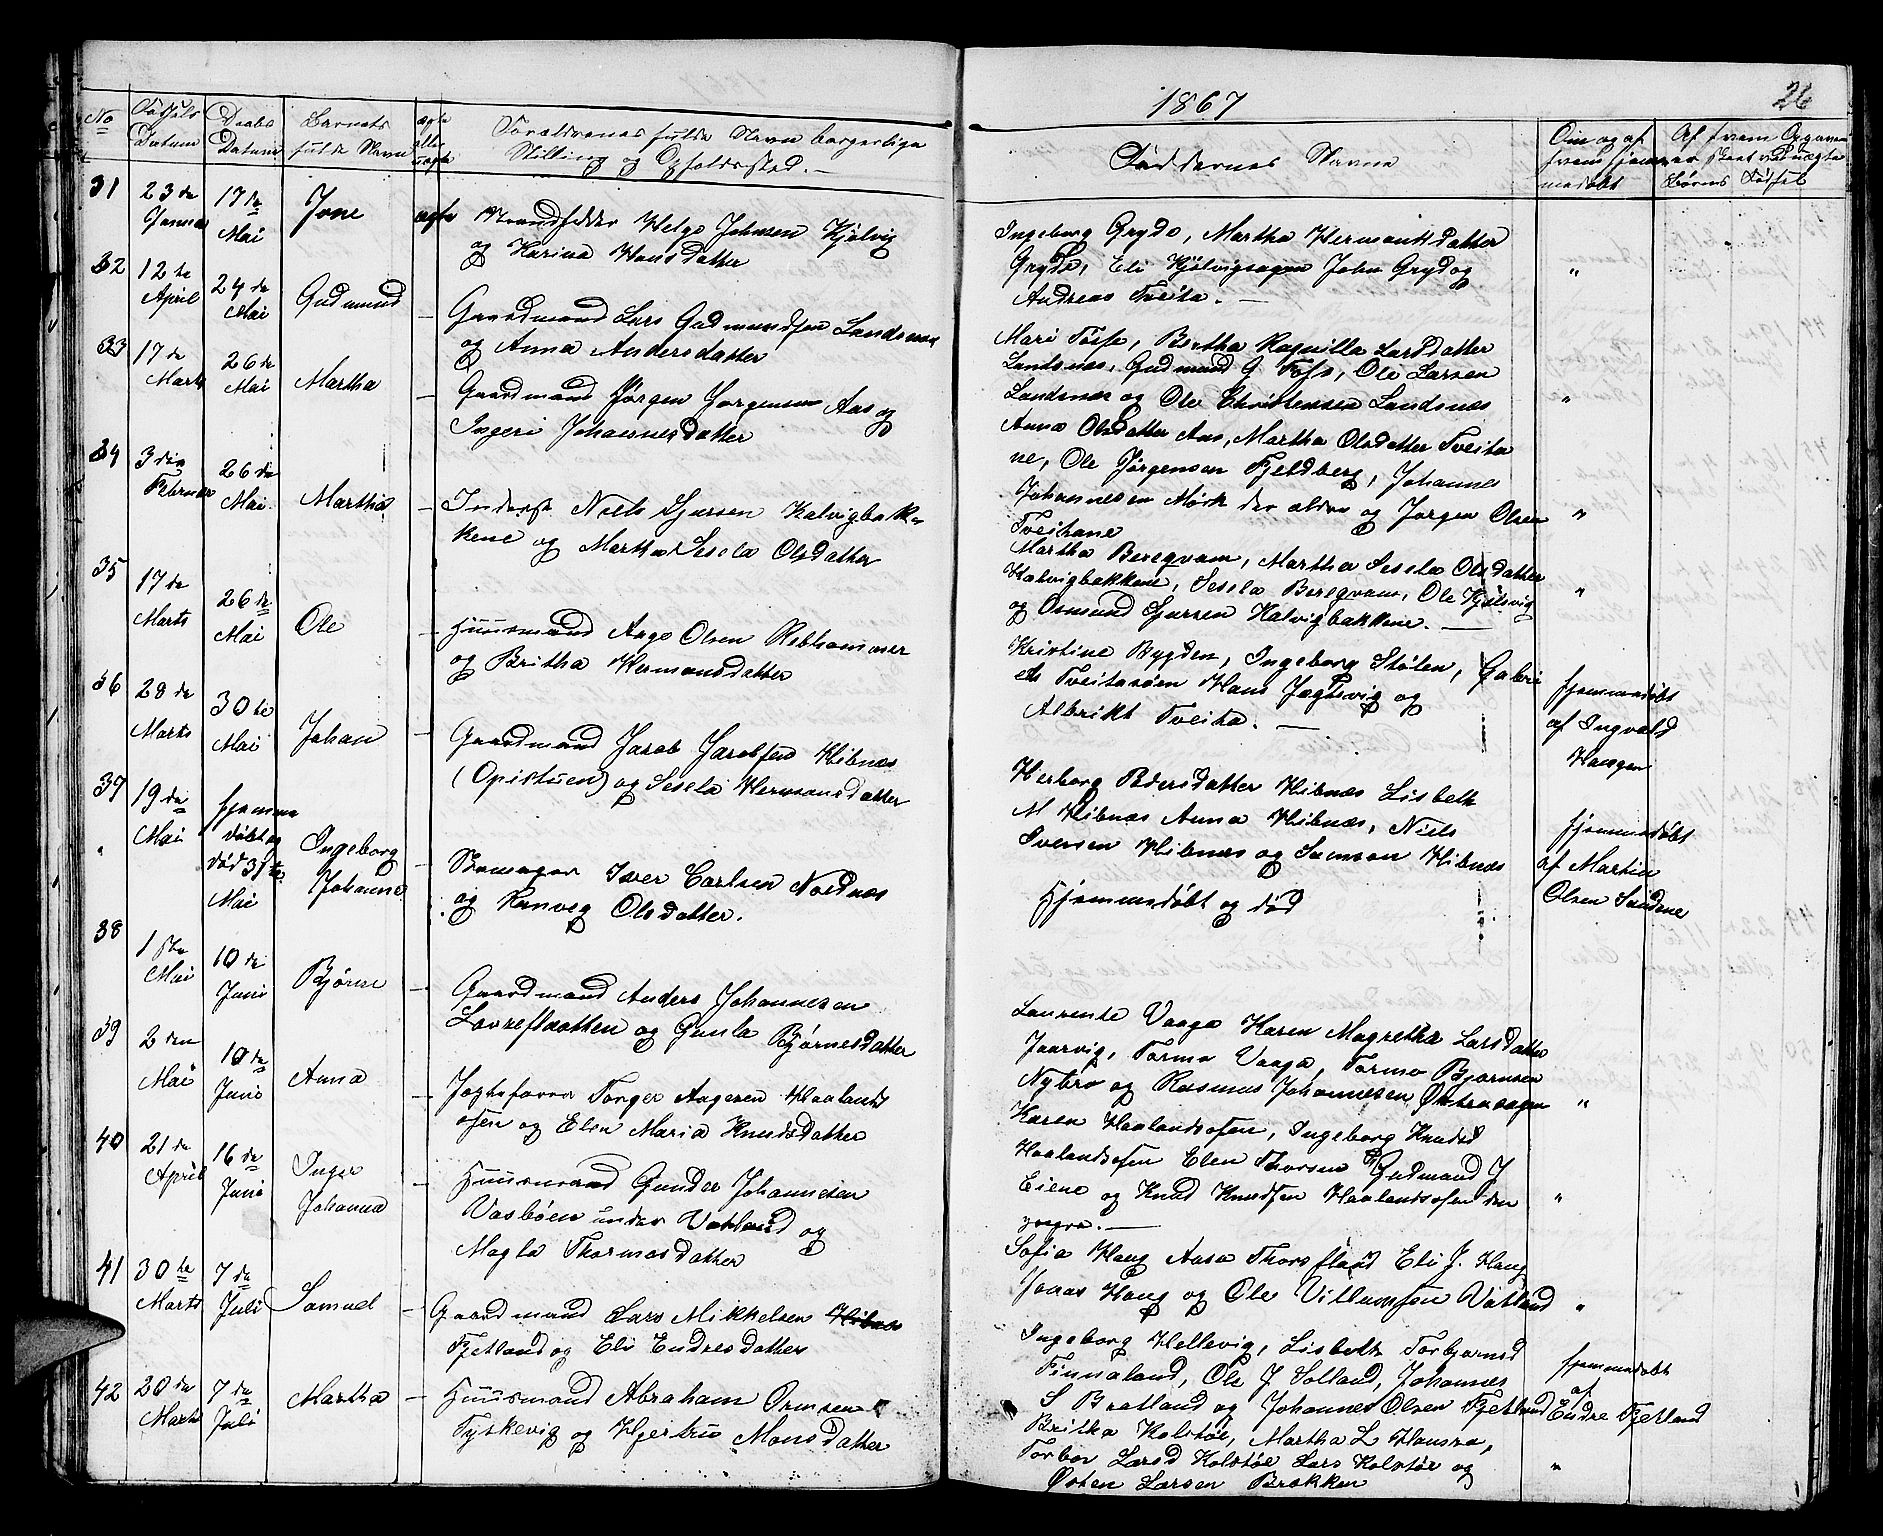 1867
26
No
Fødsels Datum
Daabs Datum
Barnets fulde Navn
ægte eller uægte
Forældrenes fulde Navn borgerlige
Stilling og Opholdssted.
Faddernes Navne
Om og af hvem hjemmedøbt
31
23de Januar
17de Mai
Jone
ægte
Helge Johnsen Kjølvig
og Karina Hansdatter
Ingeborg Gryde, Martha Hermansdatter
Gryde, Eli Kjølvigsagen John Gryde og
Andreas Tveita.
"
32
12te April
24de Mai
Gudmund
Gaardmand Lars Gudmundsen Landsnæs
og Anna Andersdatter
Mari Fosse, Bertha Ragnilla Larsdatter
Landsnæs, Gudmund G. Foss, Ole Larsen
Landsnæs og Ole Christensen Landsnæs
"
33
17de Marts
26de Mai
Martha
Gaardmand Jørgen Jørgensen Aas og
Ingeri Johannesdatter
Anna Olsdatter Aas, Martha Olsdatter Tveita
ne, Ole Jørgensen Fjeldberg, Johannes
Johannesen Mørk den ældre og Jørgen Olsen
Tveitane
"
34
3die Februar
26de Mai
Martha
Inderst Niels Sjursen Kalvigbak-
kene og Martha Sesela Olsdatter
Martha Beregvam, Martha Sesela Olsdatter
Kalvigbakkene, Sesela Beregvam, Ole Kjølvig
og Osmund Sjursen Kalvigbakkene.
"
35
17de Marts
26de Mai
Ole
Huusmand Aage Olsen Rebhammer
og Britha Hermansdatter
Kristine Bygden, Ingeborg Stølen, Gabri
el Tveitasøen Hans Jægtevig og
Albrikt Tveita.
hjemmedøbt
af Ingvald
Haugen
36
28de Marts
30te Mai
Johan
Gaardmand Jacob Jacobsen Hibnæs
(Opistuen) og Sesela Hermansdatter
Herborg Hibnæs Lisbeth
M Hibnæs Anna Hibnæs, Niels
Iversen Hibnæs og Samson Hibnæs
hjemmedøbt
af Martin
Olsen Sandene
37
19de Mai
hjemme
døbt og
død 31te
Mai
Ingeborg
Johanne
Iver Carlsen Nordnæs
og Ranveg Olsdatter.
Hjemmedøbt og død
38
1ste Mai
10de Juni
Bjørne
Gaardmand Anders Johannesen
Lovrefladten og Gunla Bjørnesdatter
Laurente Vaage Karen Magretha Larsdatter
Jaarvig, Tormo Vaaga, Tormo Bjørnsen
Nybro og Rasmus Johannesen
"
39
2den Mai
10de Juni
Anna
Jægtefører Torger Aagesen Haalands
osen og Elen Maria Knudsdatter
Karen Haalandsosen, Ingeborg Knudsd
Haalandsosen Elen Thorsen Gudmund J
Eiene og Knud Knudsen Haalandsosen den
yngre.
"
40
21de April
16de Juni
Inger
Johanna
Huusmand Gunder Johannesen
Vasbøen under Vatland og
Magla Thormosdatter
Sofia Haug Aasa Thorsfland Eli J. Haug
Jonas Haug og Ole Villumsen Vatland
"
41
30te Marts
7de Juli
Samuel
Gaardmand Lars Mikkelsen Hibnæs
Fjetland og Eli Endresdatter
Ingeborg Hellevig, Lisbeth Torbjørnsd
Finnaland, Ole J Solland, Johannes
S Bratland og Johannes Olsen Fjetland
hjemmedøbt
af
Endre Fjetland
42
20de Marts
7de Juli
Martha
Huusmand Abraham Ormsen
Tyskevig og Hjertru Monsdatter
Britha Kolstøe, Martha L Hamra,
Torber Larsd Kolstøe Lars Kolstøe og
Østen Larsen Brækken
"